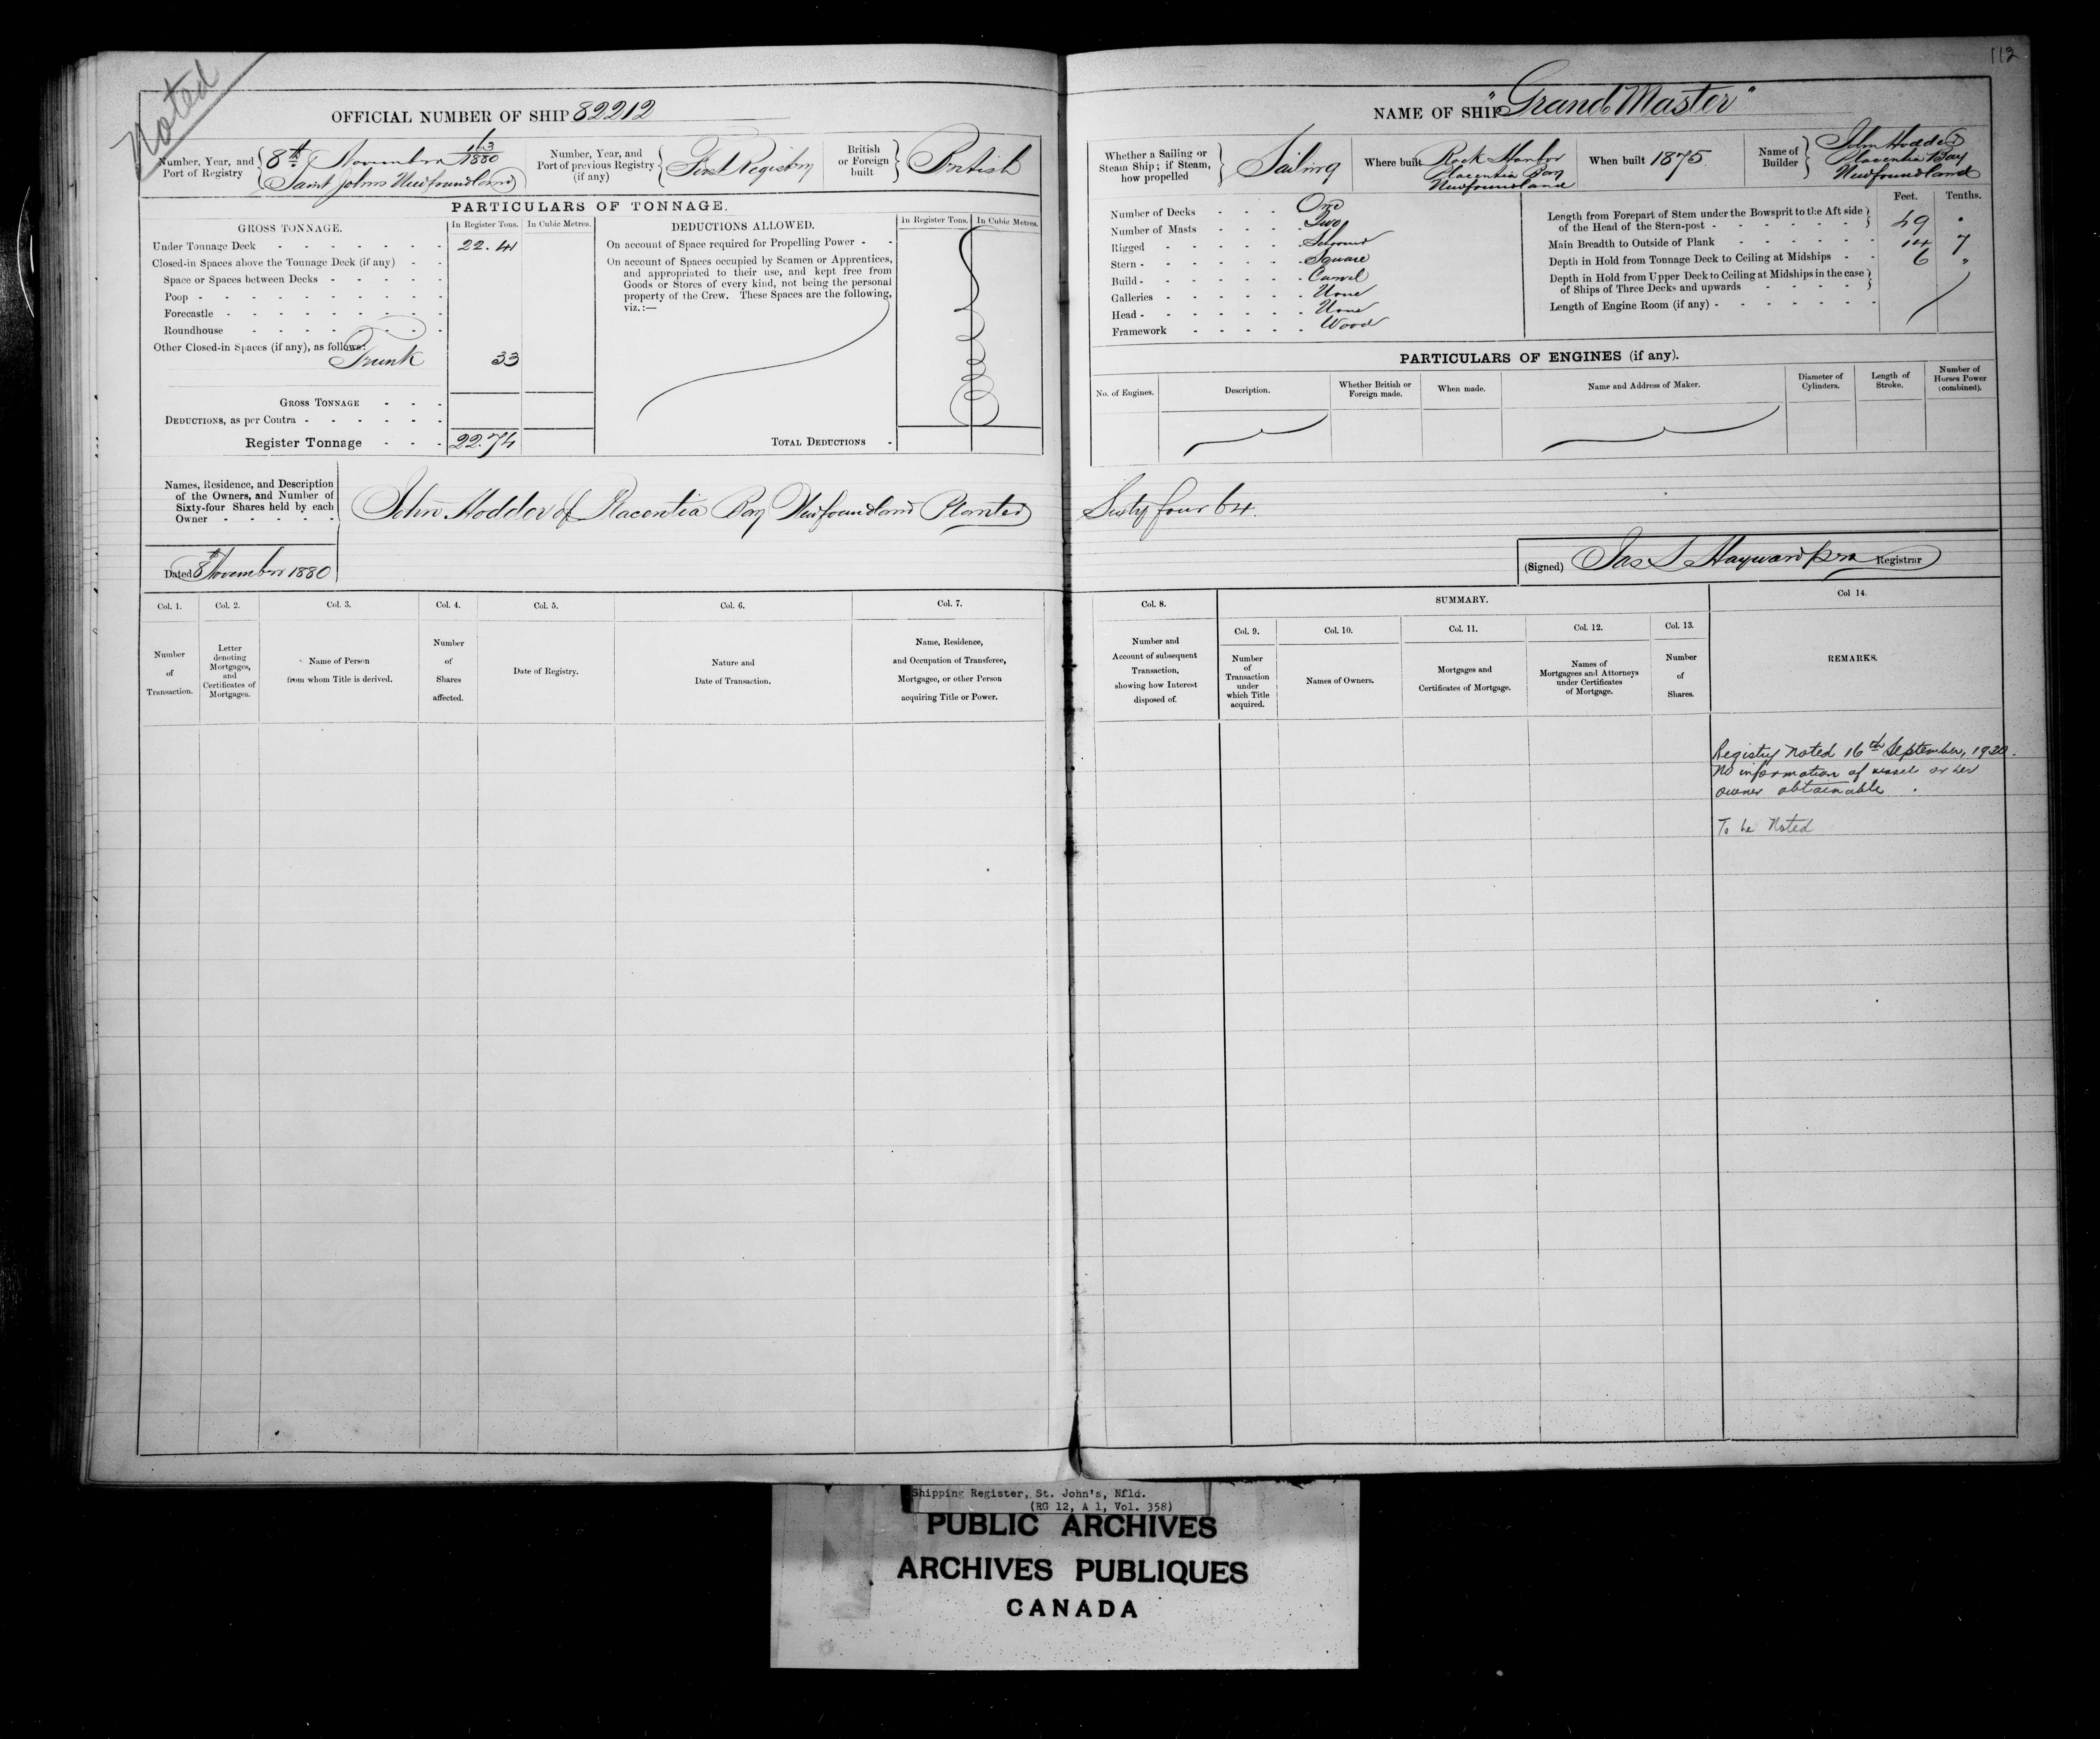 Noted
112
OFFICIAL NUMBER OF SHIP 82212
Number, Year, and Port of Registry
8th November 163/1880
Saint Johns Newfoundland
Number, Year, and Port of previous Registry (if any)
First Registry
British or Foreign built
British
PARTICULARS OF TONNAGE.
GROSS TONNAGE.
In Register Tons.
In Cubic Metres.
Under Tonnage Deck 22.41
Closed-in Spaces above the Tonnage Deck (if any)
Space or Spaces between Decks
Poop
Forecastle
Roundhouse
Other Closed-in Spaces (if any), as follows:
Trunk 33
GROSS TONNAGE
DEDUCTIONS, as per Contra
Register Tonnage 22.74
DEDUCTIONS ALLOWED.
In Register Tons.
In Cubic Metres.
On account of Space required for Propelling Power
On account of Spaces occupied by Seamen or Apprentices,
and appropriated to their use, and kept free from
Goods or Stores of every kind, not being the personal
property of the Crew. These Spaces are the following,
viz.:—
TOTAL DEDUCTIONS
Names, Residence, and Description
of the Owners, and Number of
Sixty-four Shares held by each
Owner
John Hodder of Placentia Bay Newfoundland Planter
Dated 8th November 1880
Col. 1.
Number
of
Transaction.
Col. 2.
Letter
denoting
Mortgages,
and
Certificates of
Mortgages.
Col. 3.
Name of Person
from whom Title is derived.
Col. 4.
Number
of
Shares
affected.
Col. 5.
Date of Registry.
Col. 6.
Nature and
Date of Transaction.
Col. 7.
Name, Residence,
and Occupation of Transferee,
Mortgagee, or other Person
acquiring Title or Power.
NAME OF SHIP "Grand Master"
Whether a Sailing or
Steam Ship; if Steam,
how propelled
Sailing
Where built
Rock Harbor
Placentia Bay
Newfoundland
When built 1875
Name of
Builder
John Hodder
Placentia Bay
Newfoundland
Number of Decks One
Number of Masts Two
Rigged Schooner
Stern Square
Build Carvel
Galleries None
Head None
Framework Wood
Feet.
Tenths.
Length from Forepart of Stem under the Bowsprit to the Aft side
of the Head of the Stern-post 49 "
Main Breadth to Outside of Plank 14 7
Depth in Hold from Tonnage Deck to Ceiling at Midships 6 "
Depth in Hold from Upper Deck to Ceiling at Midships in the case
of Ships of Three Decks and upwards
Length of Engine Room (if any)
PARTICULARS OF ENGINES (if any).
No. of Engines.
Description.
Whether British or
Foreign made.
When made.
Name and Address of Maker.
Diameter of
Cylinders.
Length of
Stroke.
Number of
Horses Power
(combined).
Sixty four 64.
(Signed) Jas S Hayward Registrar
Col. 8.
Number and
Account of subsequent
Transaction,
showing how Interest
disposed of.
SUMMARY.
Col. 9.
Number
of
Transaction
under
which Title
acquired.
Col. 10.
Names of Owners.
Col. 11.
Mortgages and
Certificates of Mortgage.
Col. 12.
Names of
Mortgagees and Attorneys
under Certificates
of Mortgage.
Col. 13.
Number
of
Shares.
Col 14.
REMARKS.
Registry noted 16th September, 1920.
No information of vessel or her
owner obtainable.
To be Noted
Shipping Register, St. John's, Nfld.
(RG 12, A 1, Vol. 358)
PUBLIC ARCHIVES
ARCHIVES PUBLIQUES
CANADA